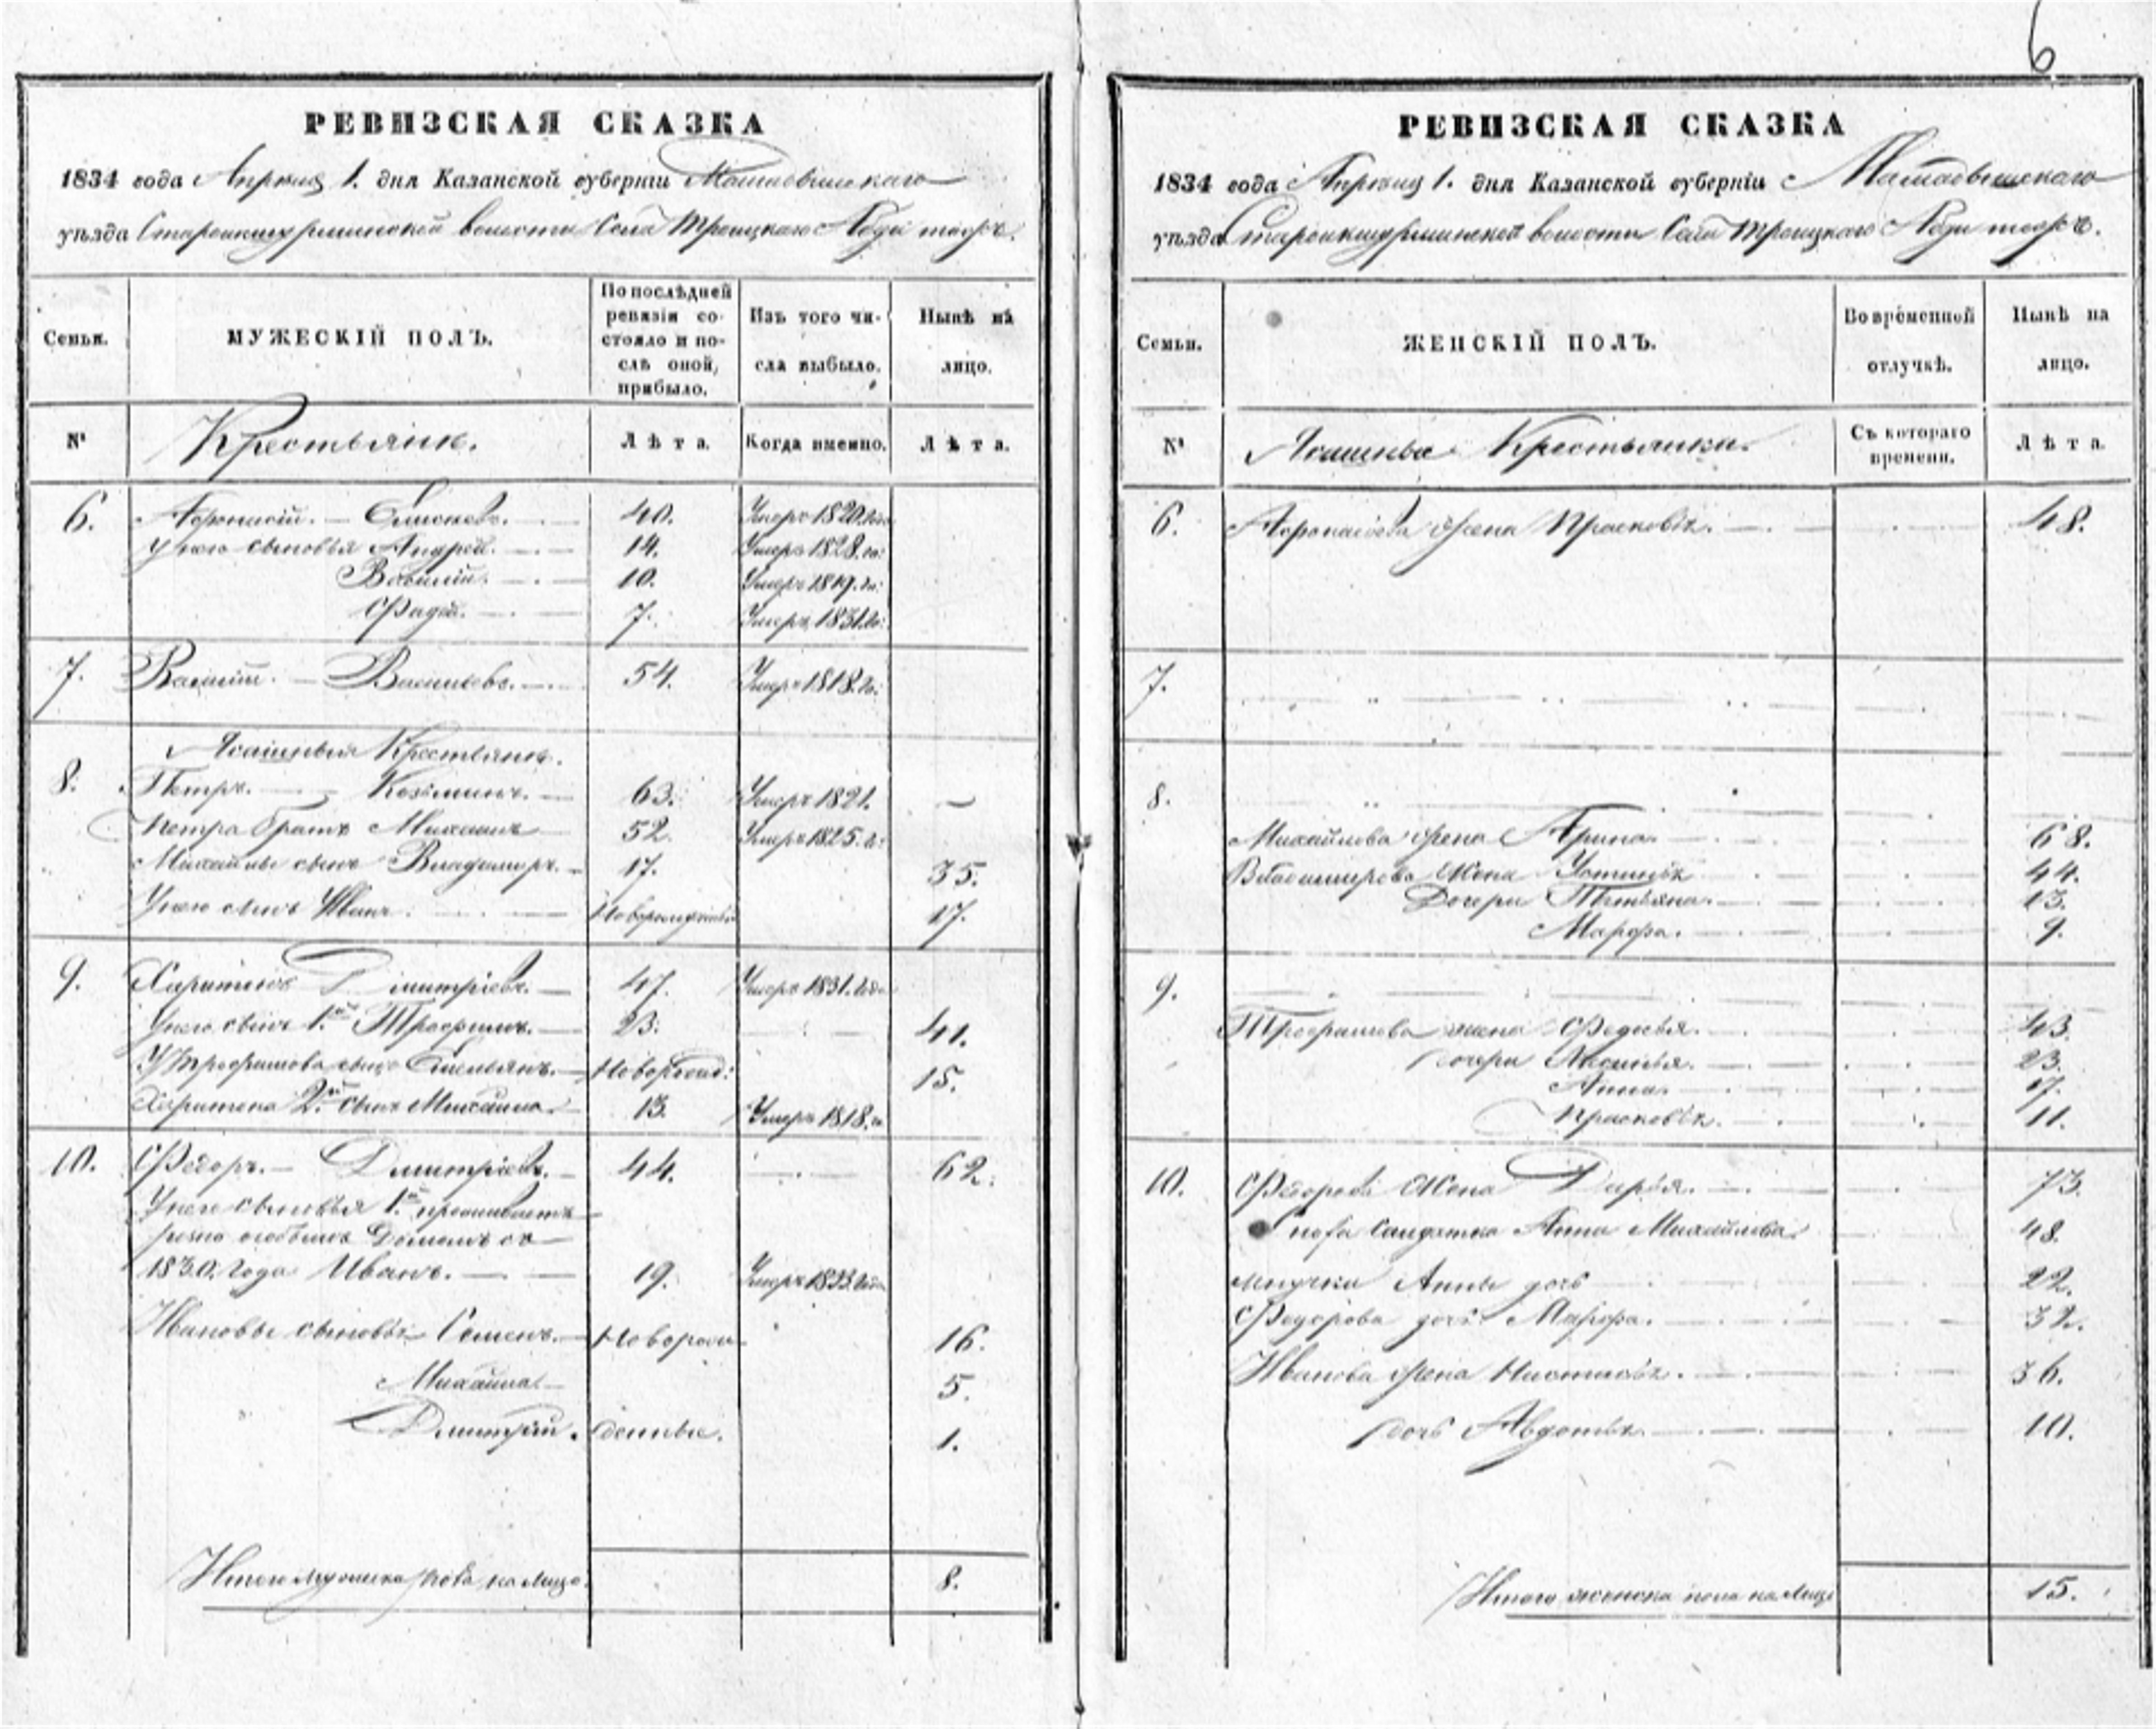 6
РЕВИЗСКАЯ СКАЗКА
1834 года Апреля 1. дня Казанской губерніи Мамадышскаго
уѣзда волости Села Троицкаго тоже.
Семьи.
МУЖЕСКІЙ ПОЛЪ.
По послѣдней ревизіи состояло и послѣ оной, прибыло.
Изъ того числа выбыло.
Нынѣ на лицо.
№
Крестьяне.
Лѣта.
Когда именно.
Лѣта.
6. 40. Умеръ 1820. года
у него сыновья Андрей. 14. Умеръ 1828. го:
10. Умеръ 1819. го:
Фадей. 7. Умеръ 1831. го:
7. Васильевъ. 54. Умеръ 1818. го:
Ясашныя Крестьяне.
8. Петръ. Козминъ. 63. Умеръ 1821. –
Петра братъ Михаилъ 52. Умеръ 1825. го:
Михайлы сынъ Владимиръ. 17. 35.
У него сынъ Иванъ. Новорожденный 17.
9. Харитонъ Дмитріевъ. 47. Умеръ 1831. года
У него сынъ 1.й Трофимъ. 23. 41.
У Трофимова сынъ Емельянъ. Новорожд: 15.
Харитона 2.й сынъ Михайла. 13. Умеръ 1818. го
10. Федоръ. Дмитріевъ. 44. 62.
У него сыновья 1.й проживаетъ
домомъ съ
1830. года Иванъ. 19. Умеръ 1833. года
Ивановы сыновья Семенъ. Новорож 16.
Михайла 5.
Дмитрій. денные. 1.
Итого мужеска пола на лицо. 8.
РЕВИЗСКАЯ СКАЗКА
1834 года Апреля 1. дня Казанской губерніи Мамадышскаго
уѣзда волости Села Троицкаго тоже.
Семьи.
ЖЕНСКІЙ ПОЛЪ.
Во временной отлучкѣ.
Нынѣ на лицо.
№
Ясашные Крестьянки.
Съ котораго времени.
Лѣта.
6. жена Прасковья. 48.
7.
8.
Михайлова жена Арина. 68.
Владимирова жена Устинья 44.
Дочери Татьяна. 13.
Марфа. 9.
9.
Трофимова жена Федосья. 43.
дочери Аксинья. 23.
Анна. 17.
Прасковья. 11.
10. Федорова жена Дарья. 73.
солдатка Анна Михайлова. 48.
Анны дочь 22.
Федорова дочь Марфа. 32.
Иванова жена Настасья. 36.
дочь Авдотья. 10.
Итого женска пола на лицо 15.